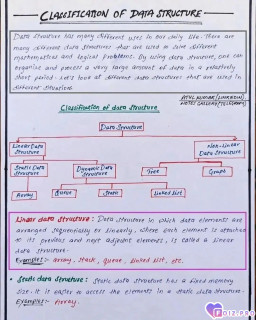 CLASSIFICATION OF DATA STRUCTURE
Data structure has many different uses in our daily life. There are
many different data structures that are used to solve different
mathematical and logical problems. By using data structure, one can
organize and process a very large amount of data in a relatively
short period. Let's look at different data structures that are used in
different situations.
ATUL KUMAR (LINKEDIN)
NOTES GALLERY (TELEGRAM)
Classification of data structure
Data structure
Linear Data structure
Non-Linear Data structure
Static Data structure
Dynamic Data structure
Tree
Graph
Array
Queue
Stack
Linked List
Linear data structure: Data structure in which data elements are
arranged sequentially or linearly, where each element is attached
to its previous and next adjacent elements, is called a linear
data structure.
Examples:- array, stack, queue, linked list, etc.
• Static data structure: Static data structure has a fixed memory
size. It is easier to access the elements in a static data structure.
Example:- Array.